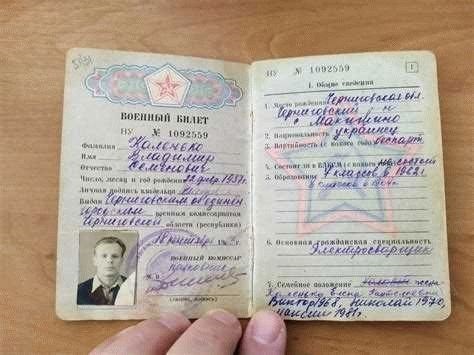 ВОЕННЫЙ БИЛЕТ
НУ № 1092559
Фамилия Каленько
Имя Владимир
Отчество Семенович
Число, месяц и год рождения 1937 г.
Личная подпись владельца
Выдан Черниговским объединен
городским военным комиссариатом
Черниговской области (республики)
ВОЕННЫЙ КОМИССАР
НУ № 1092559 1
I. Общие сведения
1. Место рождения Черниговская обл.
Черниговский
с.
2. Национальность украинец
3. Партийность (с какого года) беспарт.
4. Состоял в ВЛКСМ (с какого не состоял
5. Образование классов в 1962 г.
6. Основная гражданская специальность
Электросварщик
7. Семейное положение жена
Каленько Елена
Виктор 1968, Николай 1970,
1981 г.